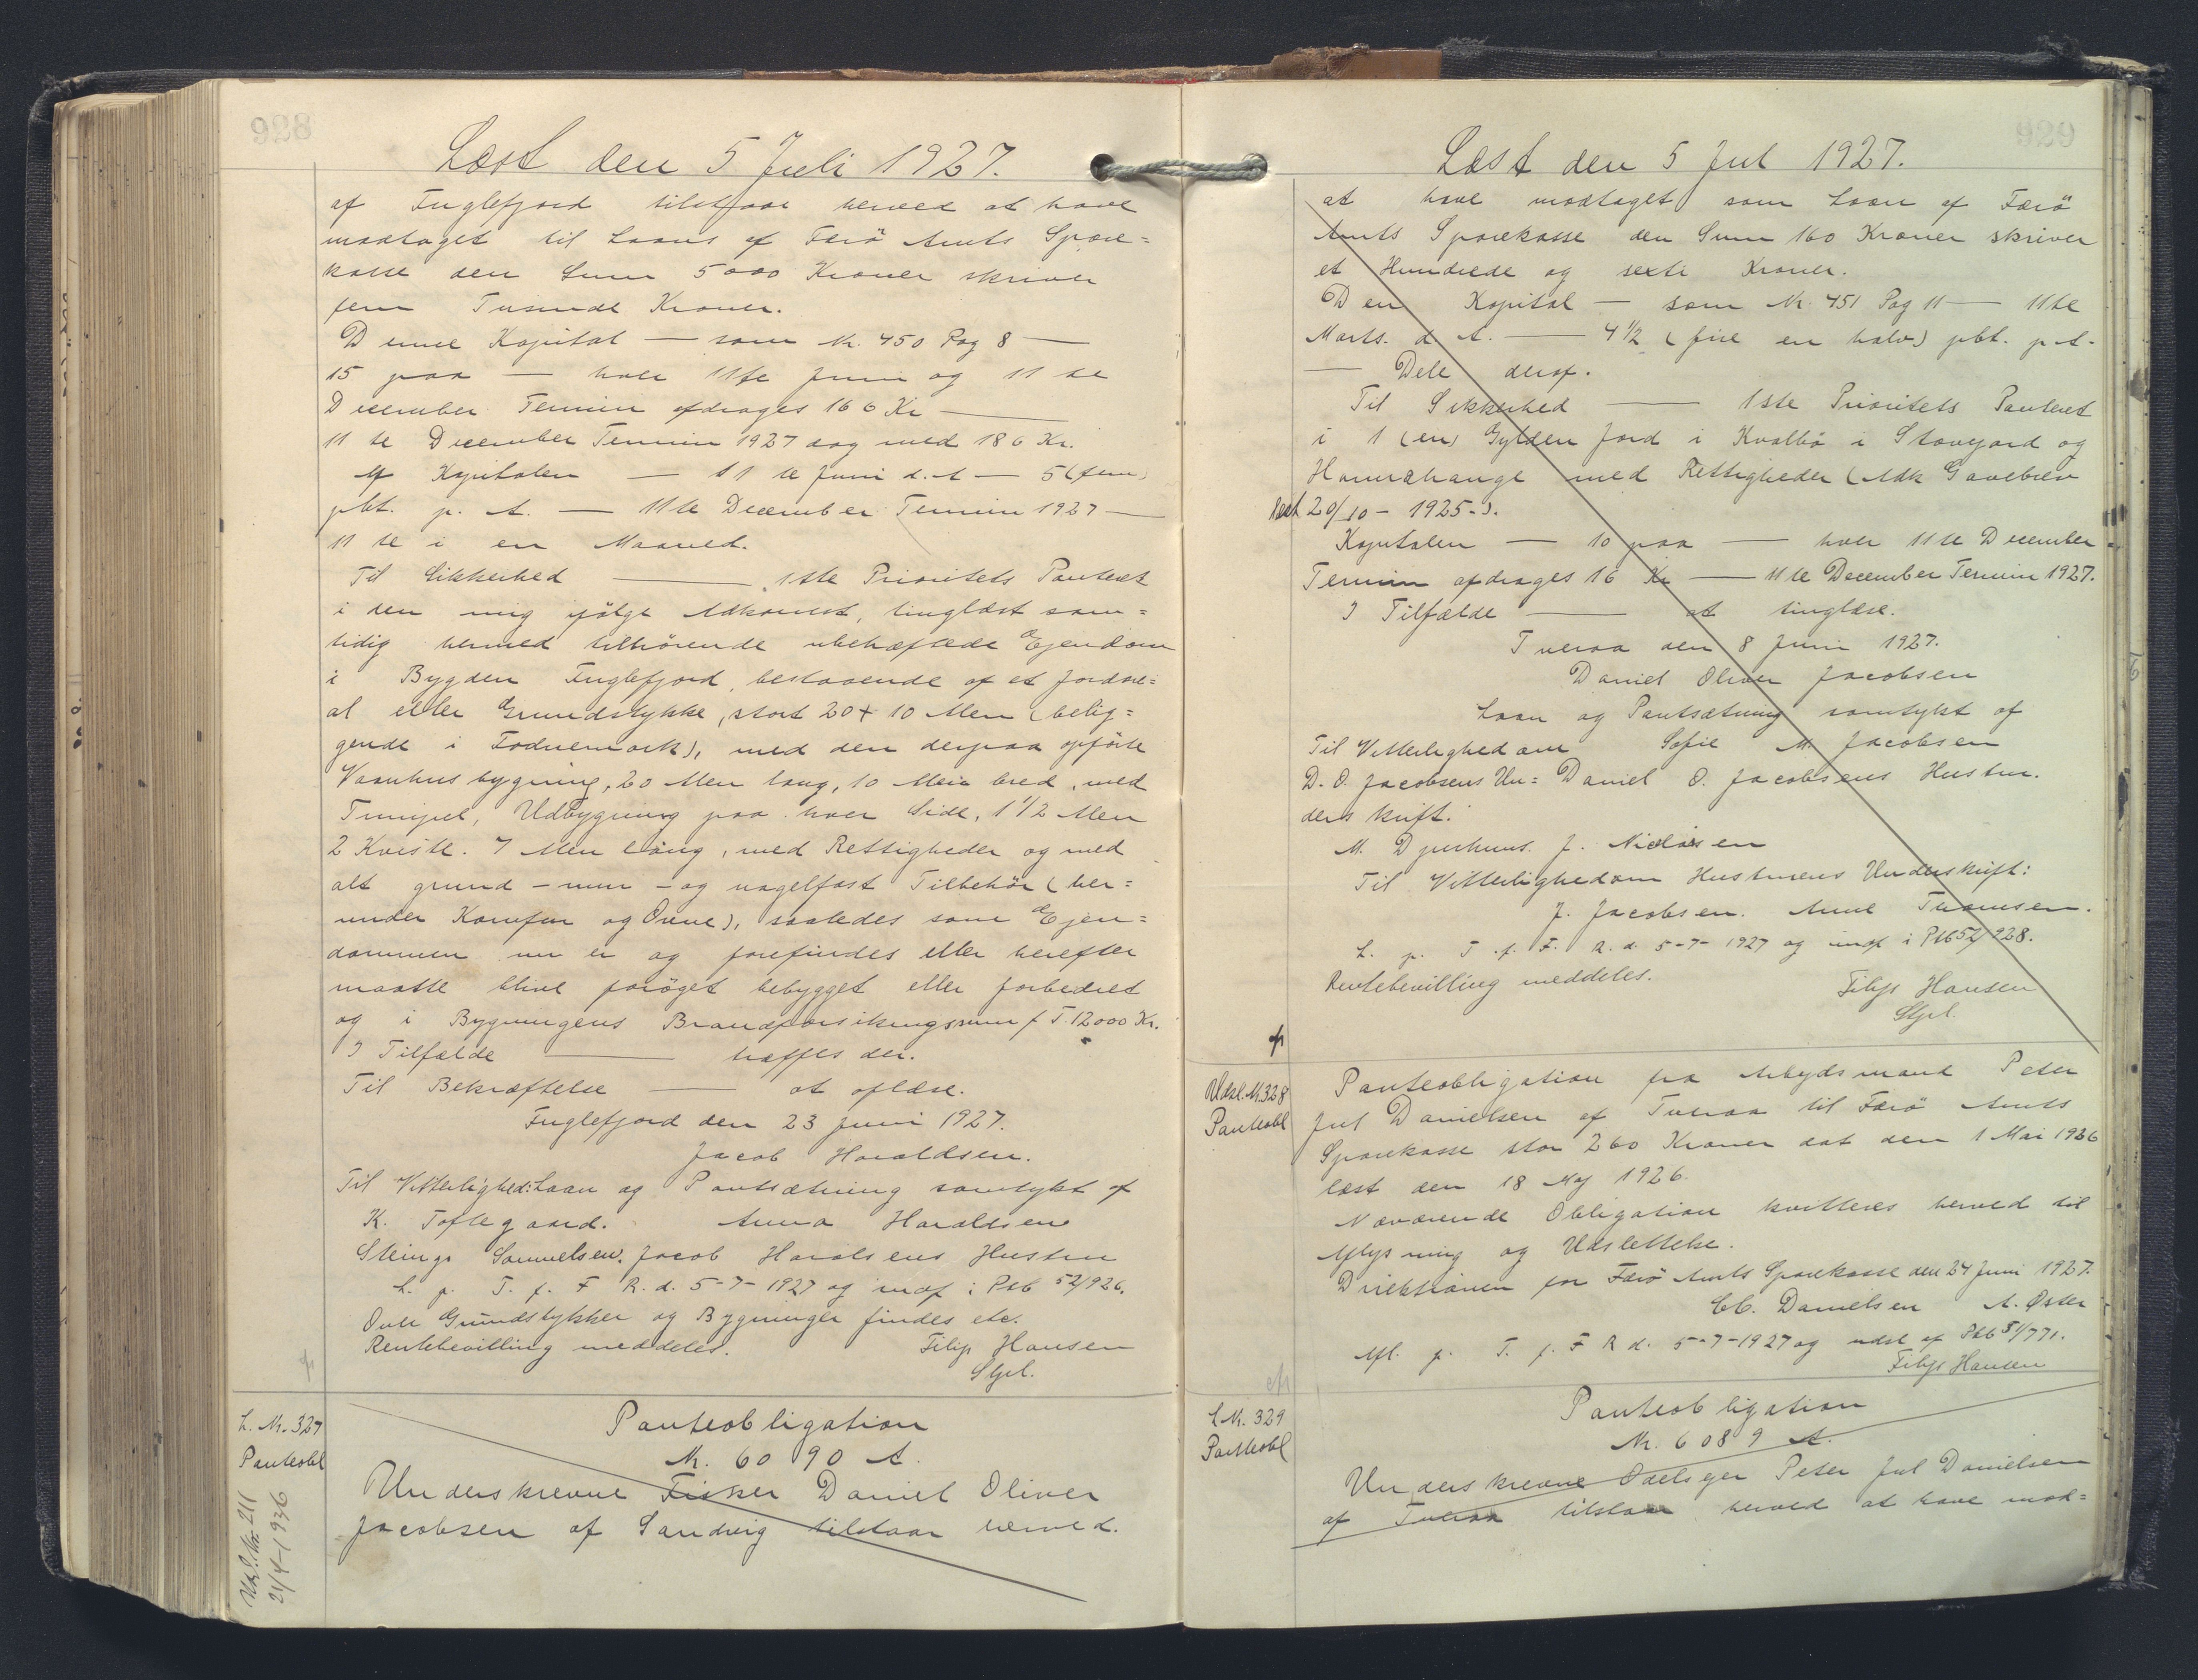 928
Læst den 5 Juli 1927.
af Fuglefjord tilstaar herved at have
modtaget til Laans af Færö Amts Spare=
kasse den Sum 5000 Kroner skriver
fem Tusinde Kroner.
Denne Kapital — som Nr. 450 Pag 8 —
15 paa — hver 11te Juni og 11 te
December Termin afdrages 166 Kr —
11 te December Termin 1927 dog med 186 Kr.
Af Kapitalen — 11 te Juni d. A — 5 (fem)
pCt. p. A. — 11te December Termin 1927 —
11 te i en Maaned.
Til Sikkerhed — 1ste Prioritets Panteret
i den mig ifölge Adkomst, tinglæst sam=
tidig hermed tilhörende ubehæftede Ejendom
i Bygden Fuglefjord, bestaaende af et Jordare=
al eller Grundstykke, stort 20 + 10 Alen (belig=
gende i), med den derpaa opförte
Vaanhusbygning, 20 Alen lang, 10 Alen bred, med
Udbygning paa hver Side, 1 1/2 Alen
2 Kviste. 7 Alen lang, med Rettigheder og med
alt grund - mur - og nagelfast Tilbehör (her=
under Komfur og Ovne), saaledes som Ejen=
dommen nu er og forefindes eller herefter
maatte blive foröget bebygget eller forbedret
og i Bygningens Brandforsikringssum f. T. 12000 Kr.
I Tilfælde — træffes der.
Til Bekræftelse — at aflæse.
Fuglefjord den 23 Juni 1927.
Jacob Haraldsen.
Til Vitterlighed: Laan og Pantsætning samtykt af
K. Toftegaard. Anna Haraldsen
Samuelsen. Jacob Haralsens Hustru
L. p. T. f. F R. d. 5-7-1927 og indf i Ptb 52/926.
Over Grundstykker og Bygninger findes etc.
Rentebevilling meddeles. Filip Hansen
Stgl.
L. Nr. 327
Panteobl
Uds. L. Nr. 211
21/4-1936
Panteobligation
Nr. 6090 A.
Underskrevne Fisker Daniel Oliver
Jacobsen af Sandvig tilstaar herved.
929
Læst den 5 Jul 1927.
at have modtaget som Laan af Færö
Amts Sparekasse den Sum 160 Kroner skriver
et Hundrede og sexti Kroner.
Den Kapital — som Nr. 451 Pag 11 — 11te
Marts. d. A. — 4 1/2 (fire en halv) pCt. p A.
— Dele deraf.
Til Sikkerhed — 1ste Prioritets Panteret
i 1 (en) Gylden Jord i Kvalbö i Stovejord og
Hamrahauge med Rettigheder (Adk Gavebrev
læst 20/10 - 1925.).
Kapitalen — 10 paa — hver 11te December
Termin afdrages 16 Kr — 11te December Termin 1927.
I Tilfælde — at tinglæse.
Tveraa den 8 Juni 1927.
Daniel Oliver Jacobsen
Laan og Pantsætning samtykt af
Til Vitterlighed om Sofie M. Jacobsen
D. O. Jacobsens Un= Daniel O. Jacobsens Hustru.
derskrift.
M. Djurhuus. J. Niclasen
Til Vitterlighed om Hustruens Underskrift:
J. Jacobsen. Anne Thomsen.
L. p. T. f. F. R. d. 5-7-1927 og indf i Ptb 52/928.
Rentebevilling meddeles. Filip Hansen
Stgl.
Udsl. Nr. 328
Panteobl
Panteobligation fra Arbejdsmand Peter
Jul Danielsen af Tveraa til Færö Amts
Sparekasse stor 260 Kroner dat den 1 Mai 1926
læst den 18 Maj 1926.
Nærværende Obligation kvitteres herved til
Aflysning og Udslettelse.
Direktionen for Færö Amts Sparekasse den 24 Juni 1927.
Danielsen A. Øster
Afl. p. T. f. F R d. 5-7-1927 og udsl af Ptb 51/771.
Filip Hansen
L Nr. 329
Panteobl
Panteobligation
Nr. 6089 A.
Underskrevne Odelsejer Peter Jul Danielsen
af Tveraa tilstaar herved at have mod=